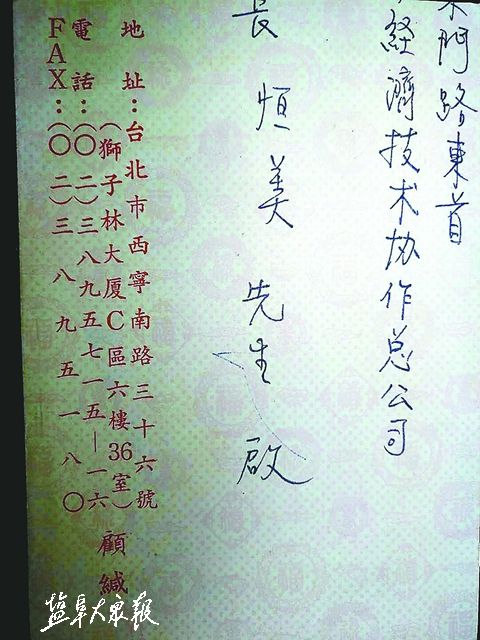 門路東首
経濟技术协作总公司
長恒美先生啟
地址：台北市西寧南路三十六號
（獅子林大厦C區六樓36室）
電話：（〇二）三八九五七一五—一六
FAX：（〇二）三八九五一八〇
顧緘
盐阜大众报